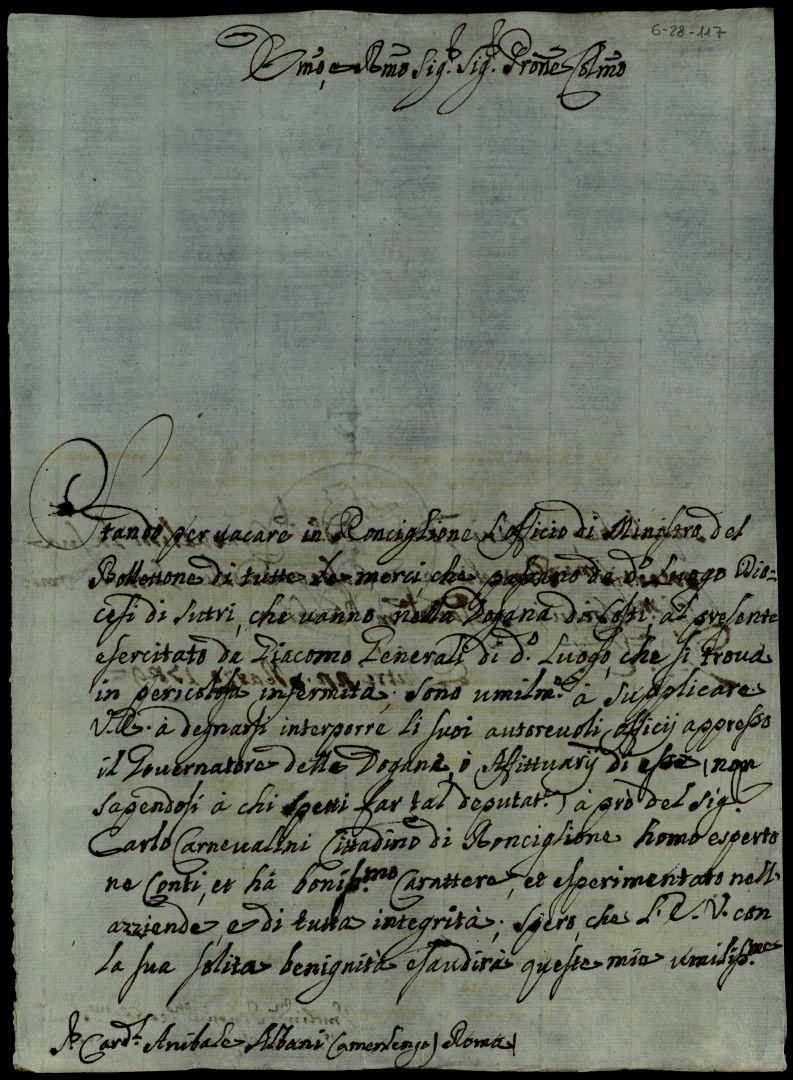 6-28-117
Emo, e Rmo Sig.r Sig.r Prone Colmo
Stando per uacare in Ronciglione l'officio di Ministro del
Bollettone di tutte le merci, che passano da d.o Luogo Dio=
cesi di Sutri, che uanno nella Dogana di Costì al presente
esercitato da Giacomo Generali di d.o Luogo, che si troua
in pericolosa infermità; sono umilm.e à supplicare
V.E. à degnarsi interporre li suoi autoreuoli officij appresso
il Gouernatore della Dogana, ò Affittuarij di essa (non
sapendosi à chi spetti far tal deputat.e) à prò del Sig.r
Carlo Carneualini Cittadino di Ronciglione homo esperto
ne Conti, et hà boniss.mo Carattere, et esperimentato nell'
azziende, e di tutta integrità; spero, che L'E.V. con
la sua solita benignità esaudirà queste mie umiliss.me
S.r Card.l Anibale Albani Camerlengo) Roma)